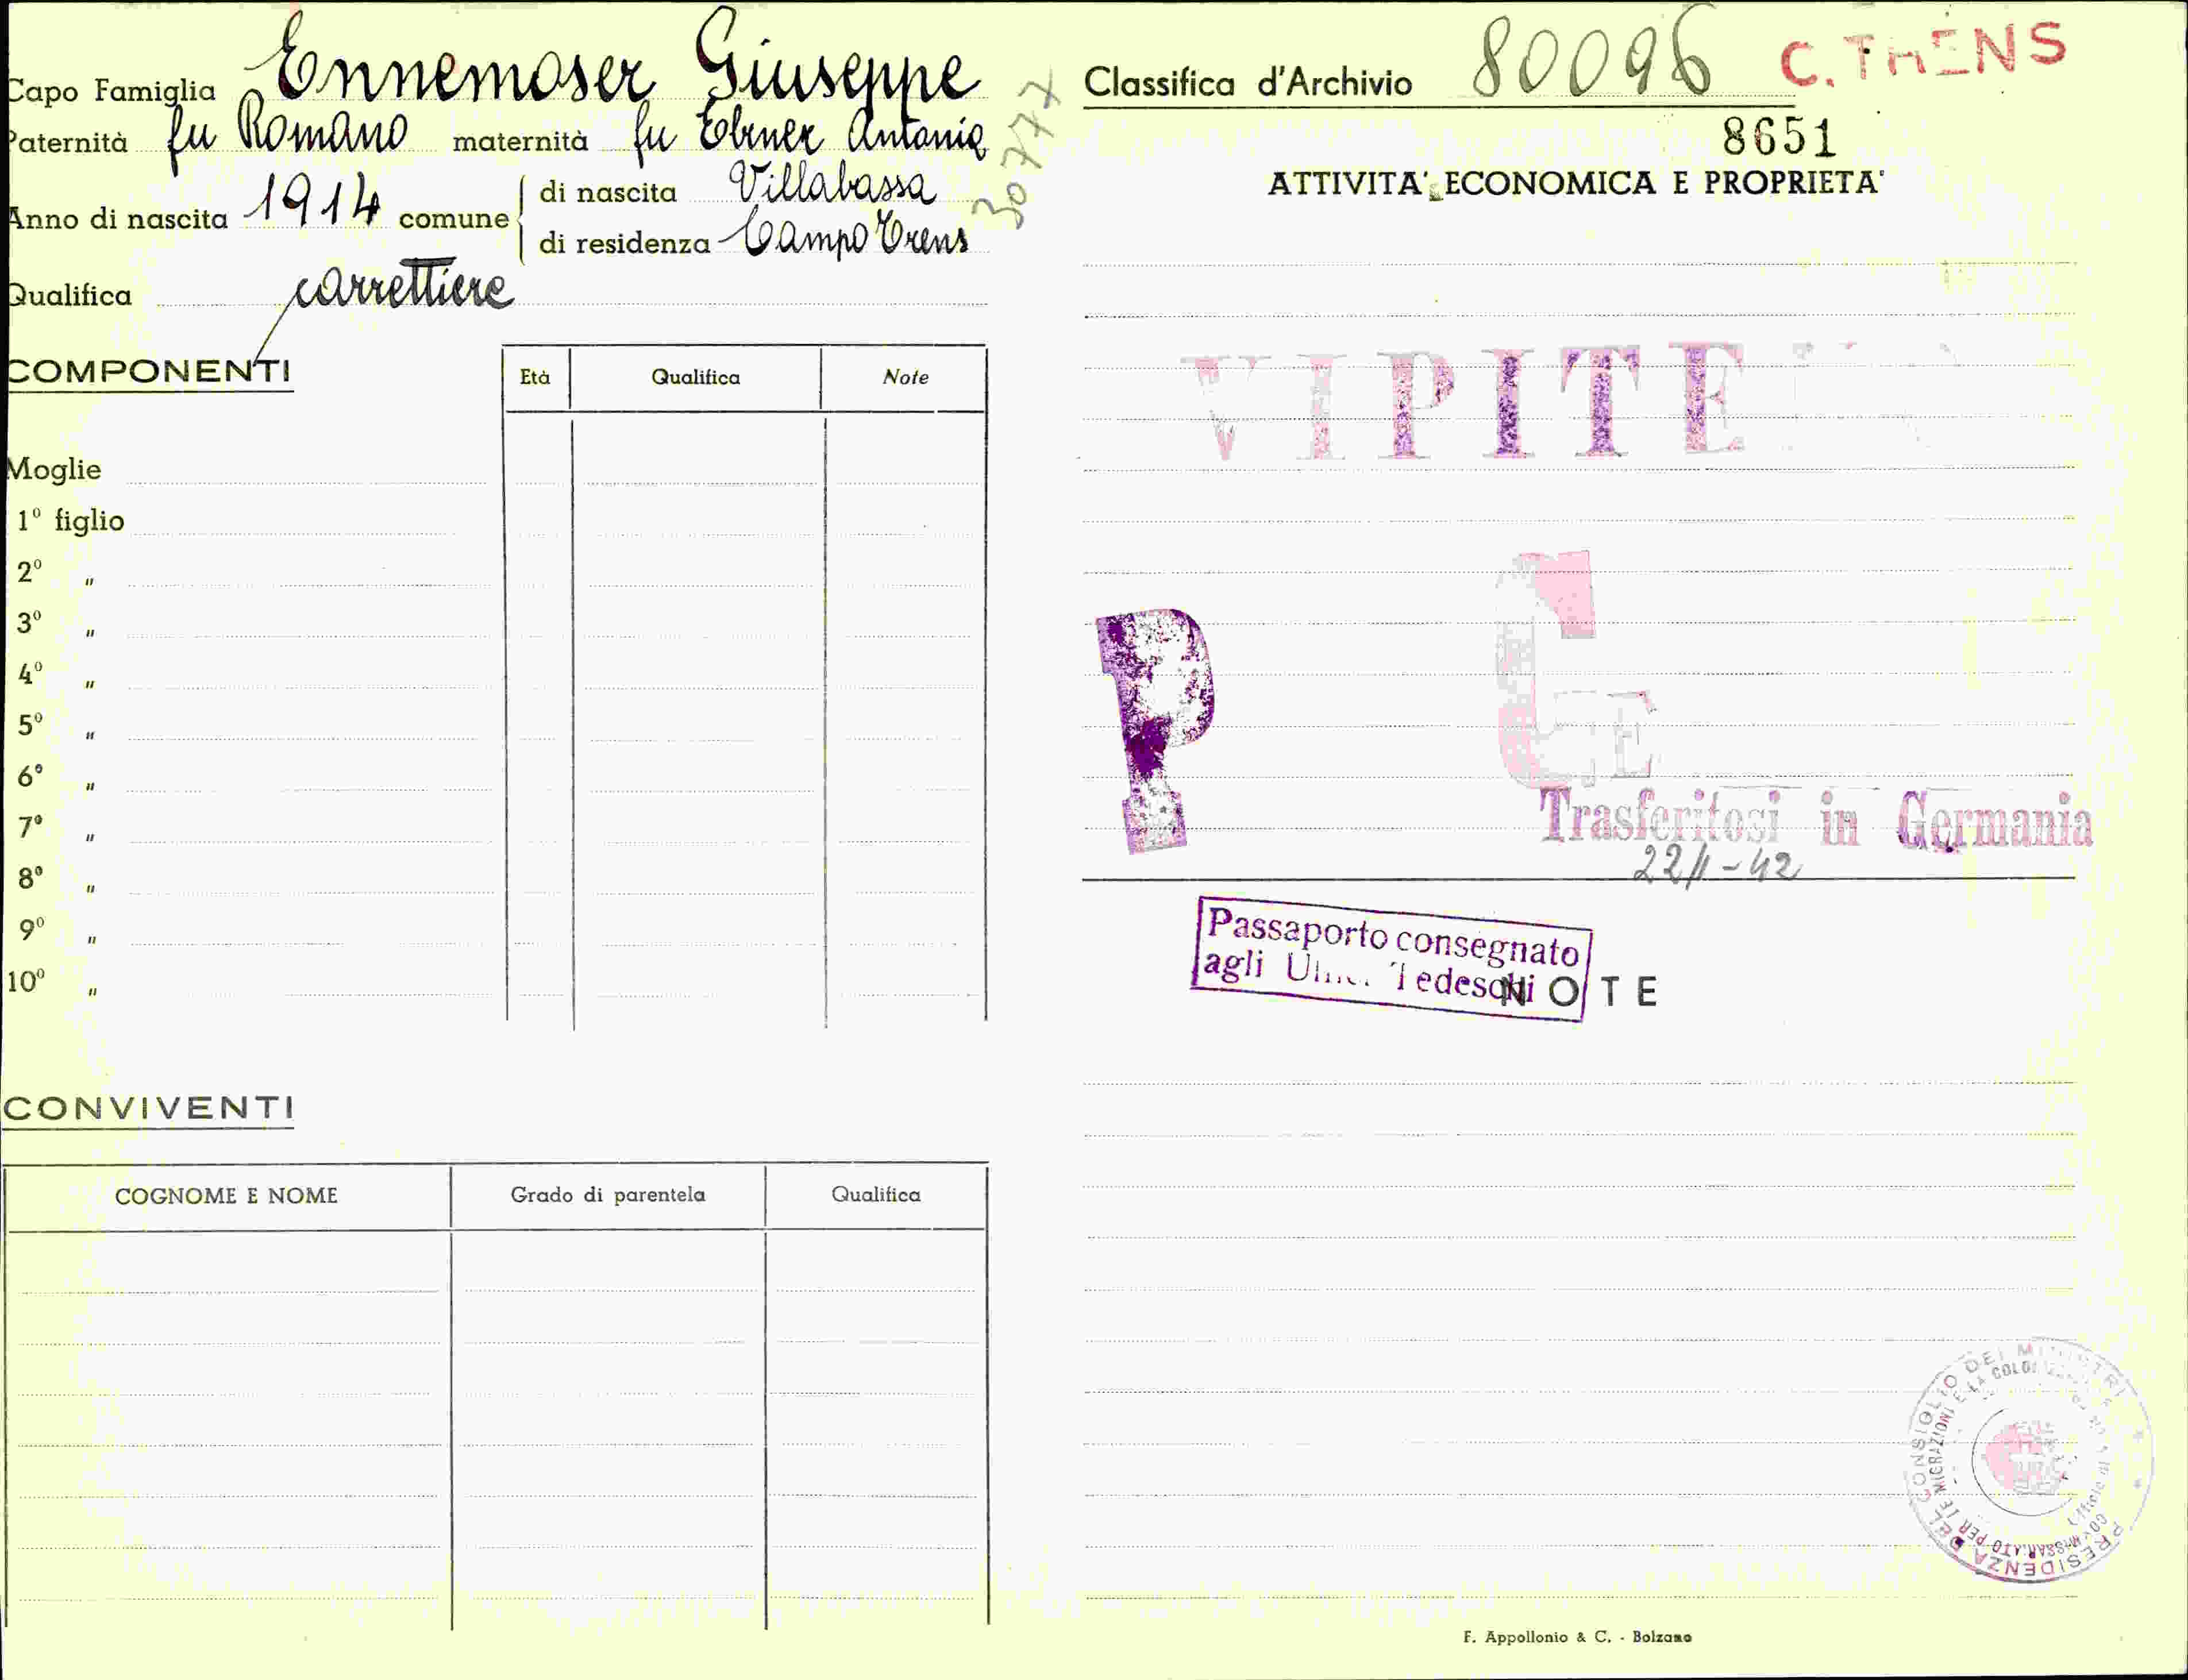 Capo Famiglia Ennemoser Giuseppe
Paternità fu Romano maternità fu Ebner Antonia
Anno di nascita 1914 comune di nascita Villabassa
di residenza Campo Trens
Qualifica carrettiere
30777
COMPONENTI
Età Qualifica Note
Moglie
1º figlio
2º "
3º "
4º "
5º "
6º "
7º "
8º "
9º "
10º "
CONVIVENTI
COGNOME E NOME Grado di parentela Qualifica
Classifica d'Archivio 80096 C. TRENS
8651
ATTIVITA' ECONOMICA E PROPRIETA'
VIPITE
P
G
E
Trasferitosi in Germania
22/1-42
Passaporto consegnato
agli Tedeschi
NOTE
PRESIDENZA DEL CONSIGLIO DEI MINISTRI
COMMISSARIATO PER LE MIGRAZIONI E LA
F. Appollonio & C. - Bolzano